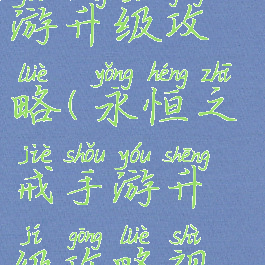 游升级攻
lüè yǒng héng zhī
略(永恒之
jiè shǒu yóu shēng
戒手游升
jí gōng lüè shì